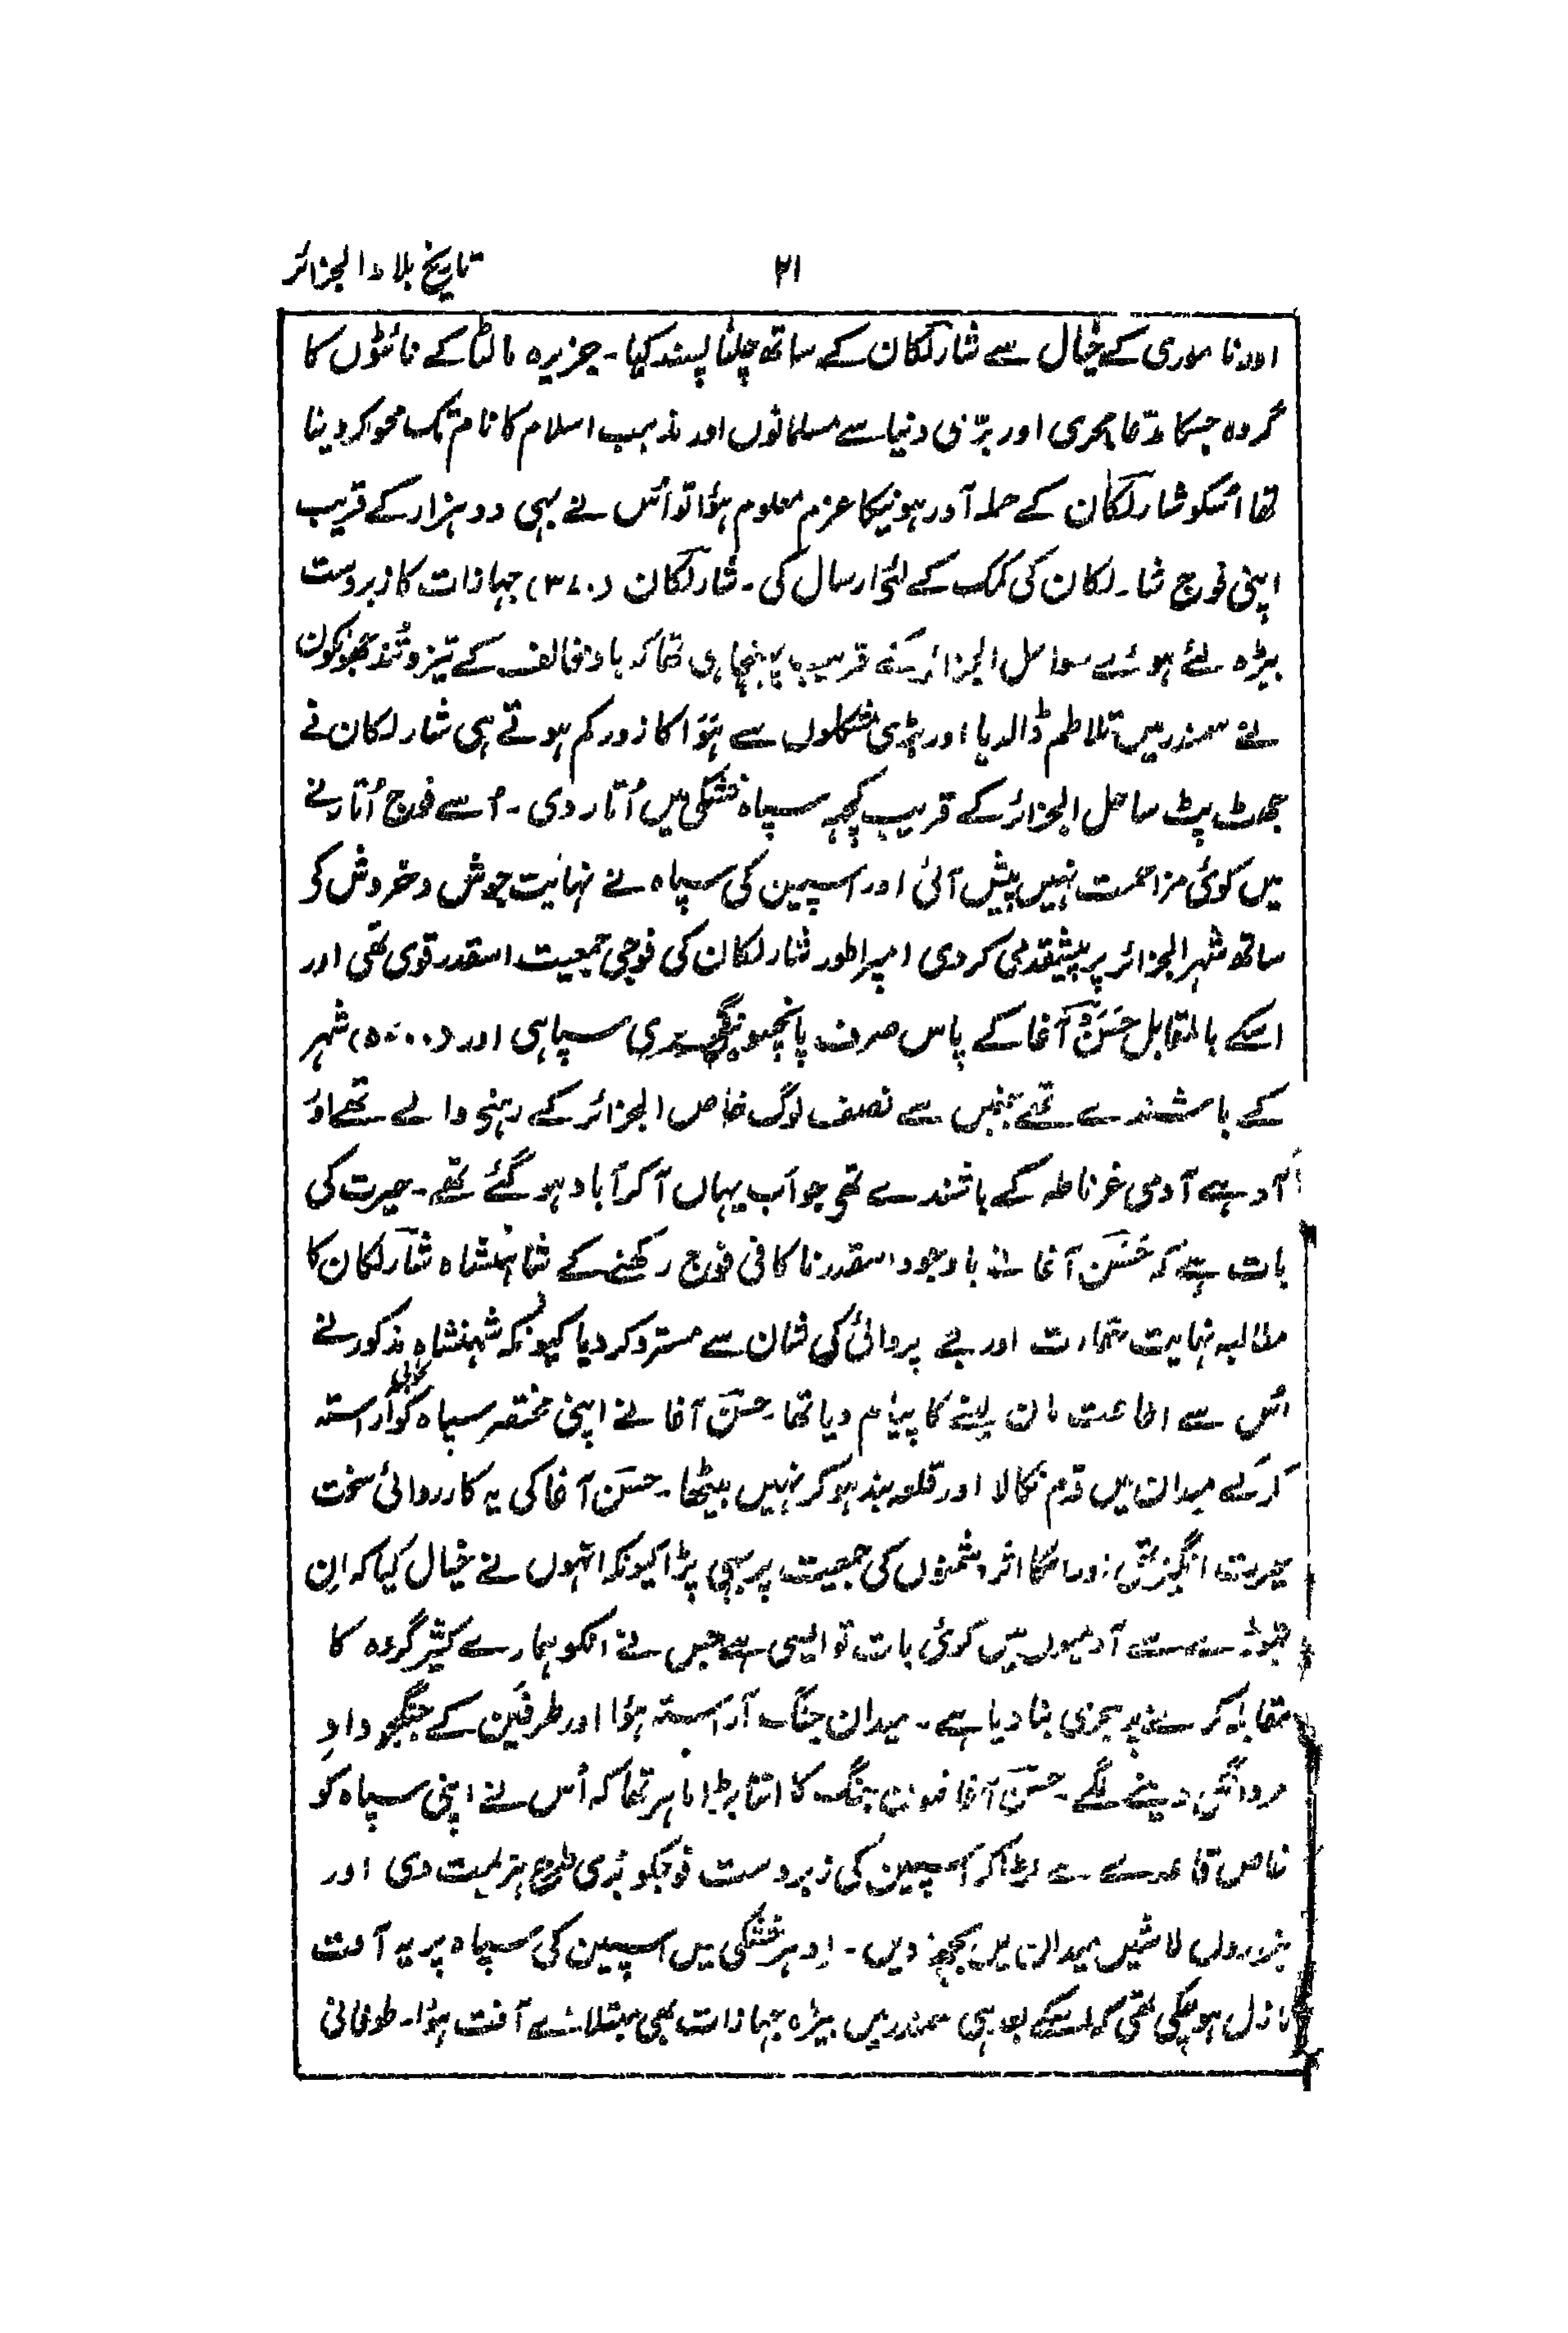 تاریخ بلاد الجزائر
۲۱
اور ناموری کے خیال سے شارلکان کے ساتھ چلنا پسند کیا۔ جزیرہ مالٹا کے نائٹوں کا
گروہ جسکا مدّعا بحری اور برّی دنیا سے مسلمانوں اور مذہب اسلام کا نام تک محو کردینا
تھا اُسکو شارلکان کے حملہ آور ہونیکا عزم معلوم ہؤا تو اُس نے بہی دو ہزار کے قریب
اپنی فوج شارلکان کی کمک کے لئے ارسال کی۔ شارلکان (۳۷۰) جہازات کا زبردست
بیڑہ لئے ہوئے سواحل الجزائر کے قریب پہنچا ہی تھا کہ باد مخالف کے تیز و تُند جھونکوں
نے سمندر میں تلاطم ڈالدیا اور بڑی مشکلوں سے ہَوَا کا زور کم ہوتے ہی شارلکان نے
جھٹ پٹ ساحل الجزائر کے قریب کچہہ سپاہ خشکی میں اُتار دی۔ اُسے فوج اُتارنے
میں کوئی مزاحمت نہیں پیش آئی اور اسپین کی سپاہ نے نہایت جوش و خروش کے
ساتھ شہر الجزائر پر پیشقدمی کردی امپراطور شارلکان کی فوجی جمعیت اسقدر قوی تھی اور
اسکے بالمقابل حَسَنْ آغا کے پاس صرف پانچسو ینگچری سپاہی اور (۵۰۰۰) شہر
کے باشندے تھے جنمیں سے نصف لوگ خاص الجزائر کے رہنے والے تھے اور
آدہے آدمی غرناطہ کے باشندے تھے جو اب یہاں آکر آباد ہو گئے تھے۔ حیرت کی
بات ہے کہ حَسَن آغا نے باوجود اسقدر ناکافی فوج رکھنے کے شاہنشاہ شارلکان کا
مطالبہ نہایت حقارت اور بے پروائی کی شان سے مسترد کردیا کیونکہ شہنشاہ مذکور نے
اُس سے اطاعت مان لینے کا پیام دیا تھا۔ حسن آغا نے اپنی مختصر سپاہ کو آراستہ
کرکے میدان میں قدم نکالا اور قلعہ بند ہوکر نہیں بیٹھا۔ حسن آغا کی یہ کارروائی سخت
حیرت انگیز تھی اور اسکا اثر دشمنوں کی جمعیت پر بہی پڑا کیونکہ انہوں نے خیال کیا کہ اِن
تھوڑے سے آدمیوں میں کوئی بات تو ایسی ہے جس نے انکو ہمارے کثیر گروہ کا
مقابلہ کرنے پر جری بنا دیا ہے۔ میدان جنگ آراستہ ہؤا اور طرفَین کے جنگجو دادِ
مردانگی دینے لگے۔ حسن آغا فنون جنگ کا اتنا بڑا ماہر تھا کہ اُس نے اپنی سپاہ کو
خاص قاعدے سے لڑا کر اسپین کی زبردست فوجکو بُری طرح ہزیمت دی اور
ہزاروں لاشیں میدان میں بچھا دیں۔ اِدہر خشکی میں اسپین کی سپاہ پر یہ آفت
نازل ہوچکی تھی کہ اسکے بعد ہی سمندر میں بیڑہ جہازات بھی مبتلائے آفت ہؤا۔ طوفانی